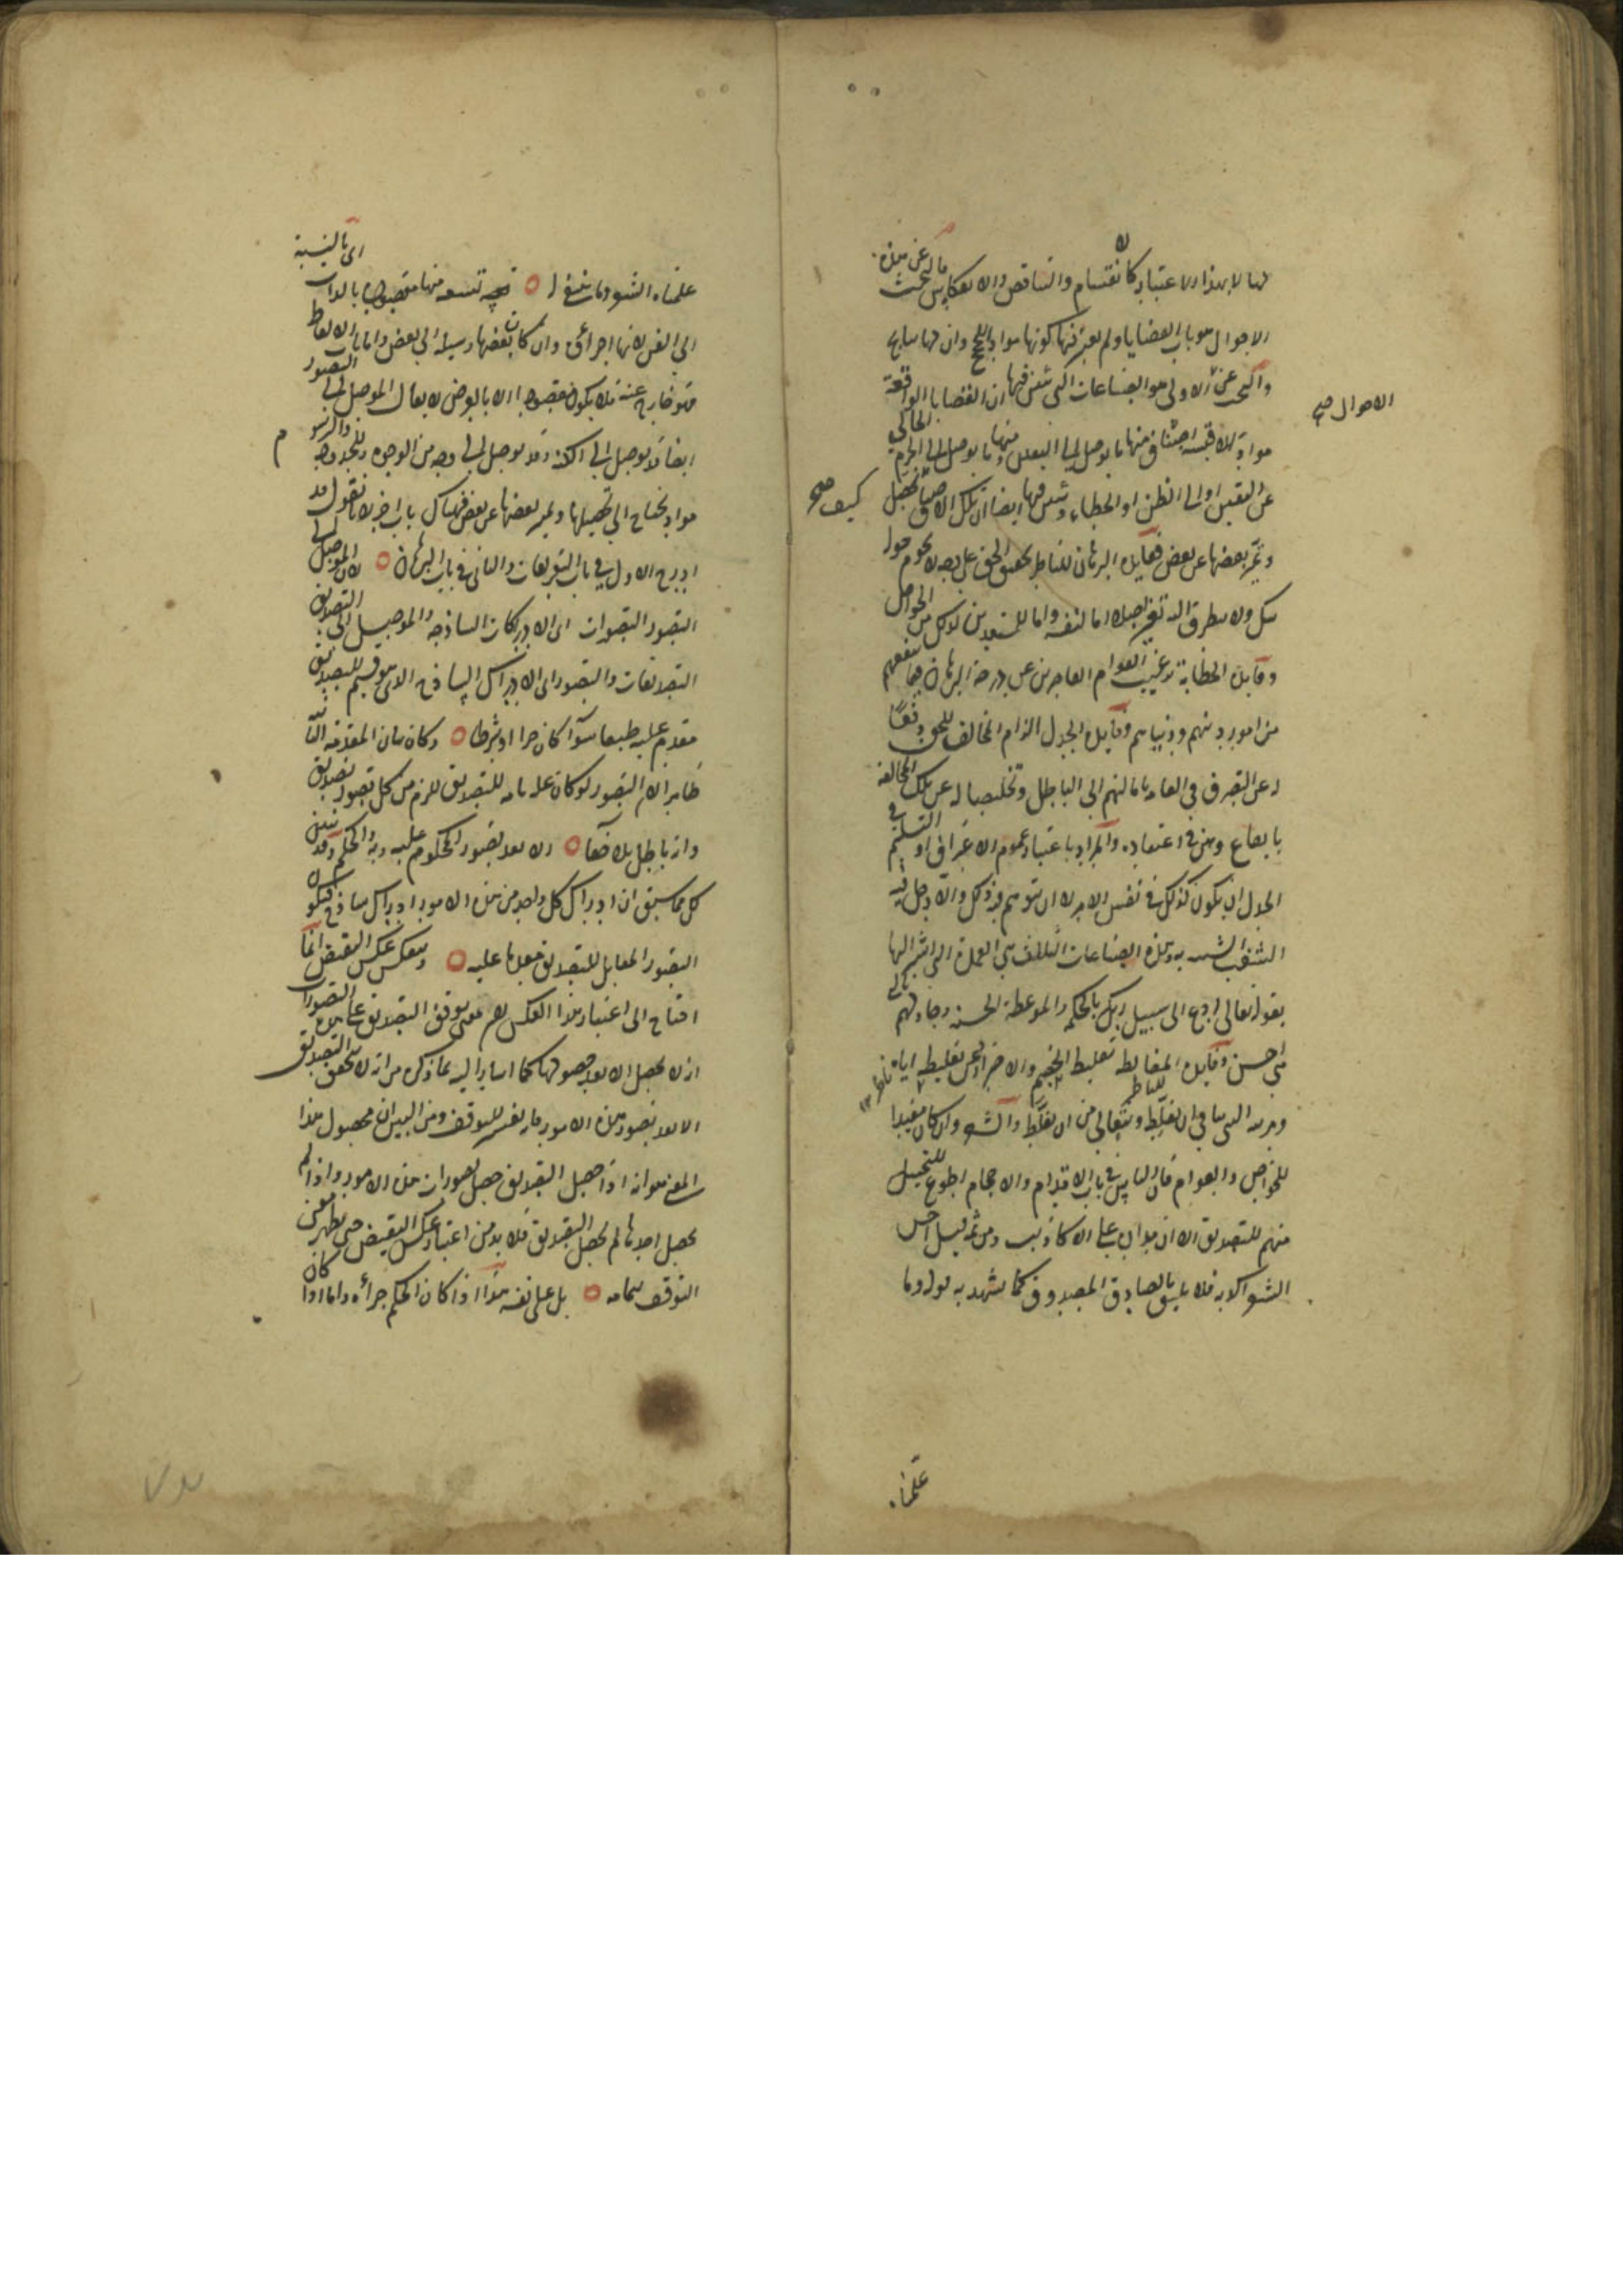 لها لا بهذا الاعتبار كالانقسام والتناقض والانعكاس فالبحث عن هذه
الاحوال هو باب القضايا ولم يعتبر فيها كونها مواد للحجج وان
والبحث عن الاولى هو الصناعات التي تبين فيها ان القضايا الواقعة
الاحوال صح
مواد للاقيسة اصناف منها ما يوصل الى اليقين ومنها ما يوصل الى الجزم الخالي
عن اليقين او الى الظن او الخطاء وتبين فيها ايضا ان تلك الاصناف تحصل
كيف صح
وتميز بعضها عن بعض ففايدة البرهان للناظر تحقيق الحق على وجه لا يحوم حوله
شك ولا يطرق اليه تغير اصلا اما لنفسه واما للمستعدين لذلك من الخواص
وفايدة الخطابة ترغيب العوام العاجزين عن درجة البرهان فيما ينفعهم
من امور دينهم ودنياهم وفايدة الجدل الزام المخالف للحق دفعا
له عن التصرف في العامة بامالتهم الى الباطل وتخليصا له عن تلك المخالفة
بايقاع وهن في اعتقاده والمراد باعتبار عموم الاعتراف او التسليم في
الجدل ان يكون كذلك في نفس الامر لا ان يتوهم فيه ذلك والا دخل فيه
الشغب وهذه الصناعات الثلاث هي العمدة التي اشير اليها
بقوله تعالى ادع الى سبيل ربك بالحكمة والموعظة الحسنة وجادلهم بالتي
هي احسن وفايدة المغالطة تغليط الخصم والاحتراز عن تغليطه اياه
للناظر ان يغلط ويتعالى من ان يغلط والشعر وان كان مفيدا
للخواص والعوام فان الناس في باب الاقدام والاحجام اطوع للتخييل
منهم للتصديق الا ان مداره على الاكاذيب ومن ثمه قيل احسن
الشعر اكذبه فلا يليق بالصادق المصدوق كما يشهد به قوله وما
علمناه
علمناه الشعر وما ينبغي له تسعة منها مقصودة بالذات اي بالنسبة
الى الفن لانها اجزاؤه وان كان بعضها وسيلة الى بعض واما باب الالفاظ
فهو خارج عنه فلا يكون مقصودا الا بالعرض لا يقال الموصل الى التصور
ايضا قد يوصل الى الكنه وقد يوصل الى وجه من الوجوه وللحد والرسم
مواد يحتاج الى تحصيلها وتميز بعضها عن بعض فهناك باب اخر لانا نقول قد
ادرج الاول في باب التعريفات والثاني في باب البرهان لان الموصل الى
التصور التصورات اي الادراكات الساذجة والموصل الى التصديق
التصديقات والتصور اي الادراك الساذج الذي هو قسيم للتصديق
مقدم عليه طبعا سواء كان جزءا او شرطا وكان بيان المقدمة الثانية
ظاهرا لان التصور لو كان علة تامة للتصديق للزم من كل تصور تصديق
وانه باطل بلا خفاء لا بعد تصور المحكوم عليه وبه والحكم وقد تبين
لك مما سبق ان ادراك كل واحد من هذه الامور ادراك ساذج فيكون
التصور المقابل للتصديق مقدما عليه وينعكس عكس النقيض انما
احتاج الى اعتبار هذا العكس لان معنى توقف التصديق على هذه التصورات
انه لا يحصل الا بعد حصولها كما اشار اليه بما ذكره من انه لا يتحقق التصديق
الا بعد تصور هذه الامور فانه تفسير للتوقف ومن البين ان محصول هذا
المعنى هو انه اذا حصل التصديق حصل تصورات هذه الامور واذا لم
يحصل احدها لم يحصل التصديق فلا بد من اعتبار عكس النقيض حتى يظهر معنى
التوقف بتمامه بل على نفسه هذا اذا كان الحكم جزأه واما اذا كان